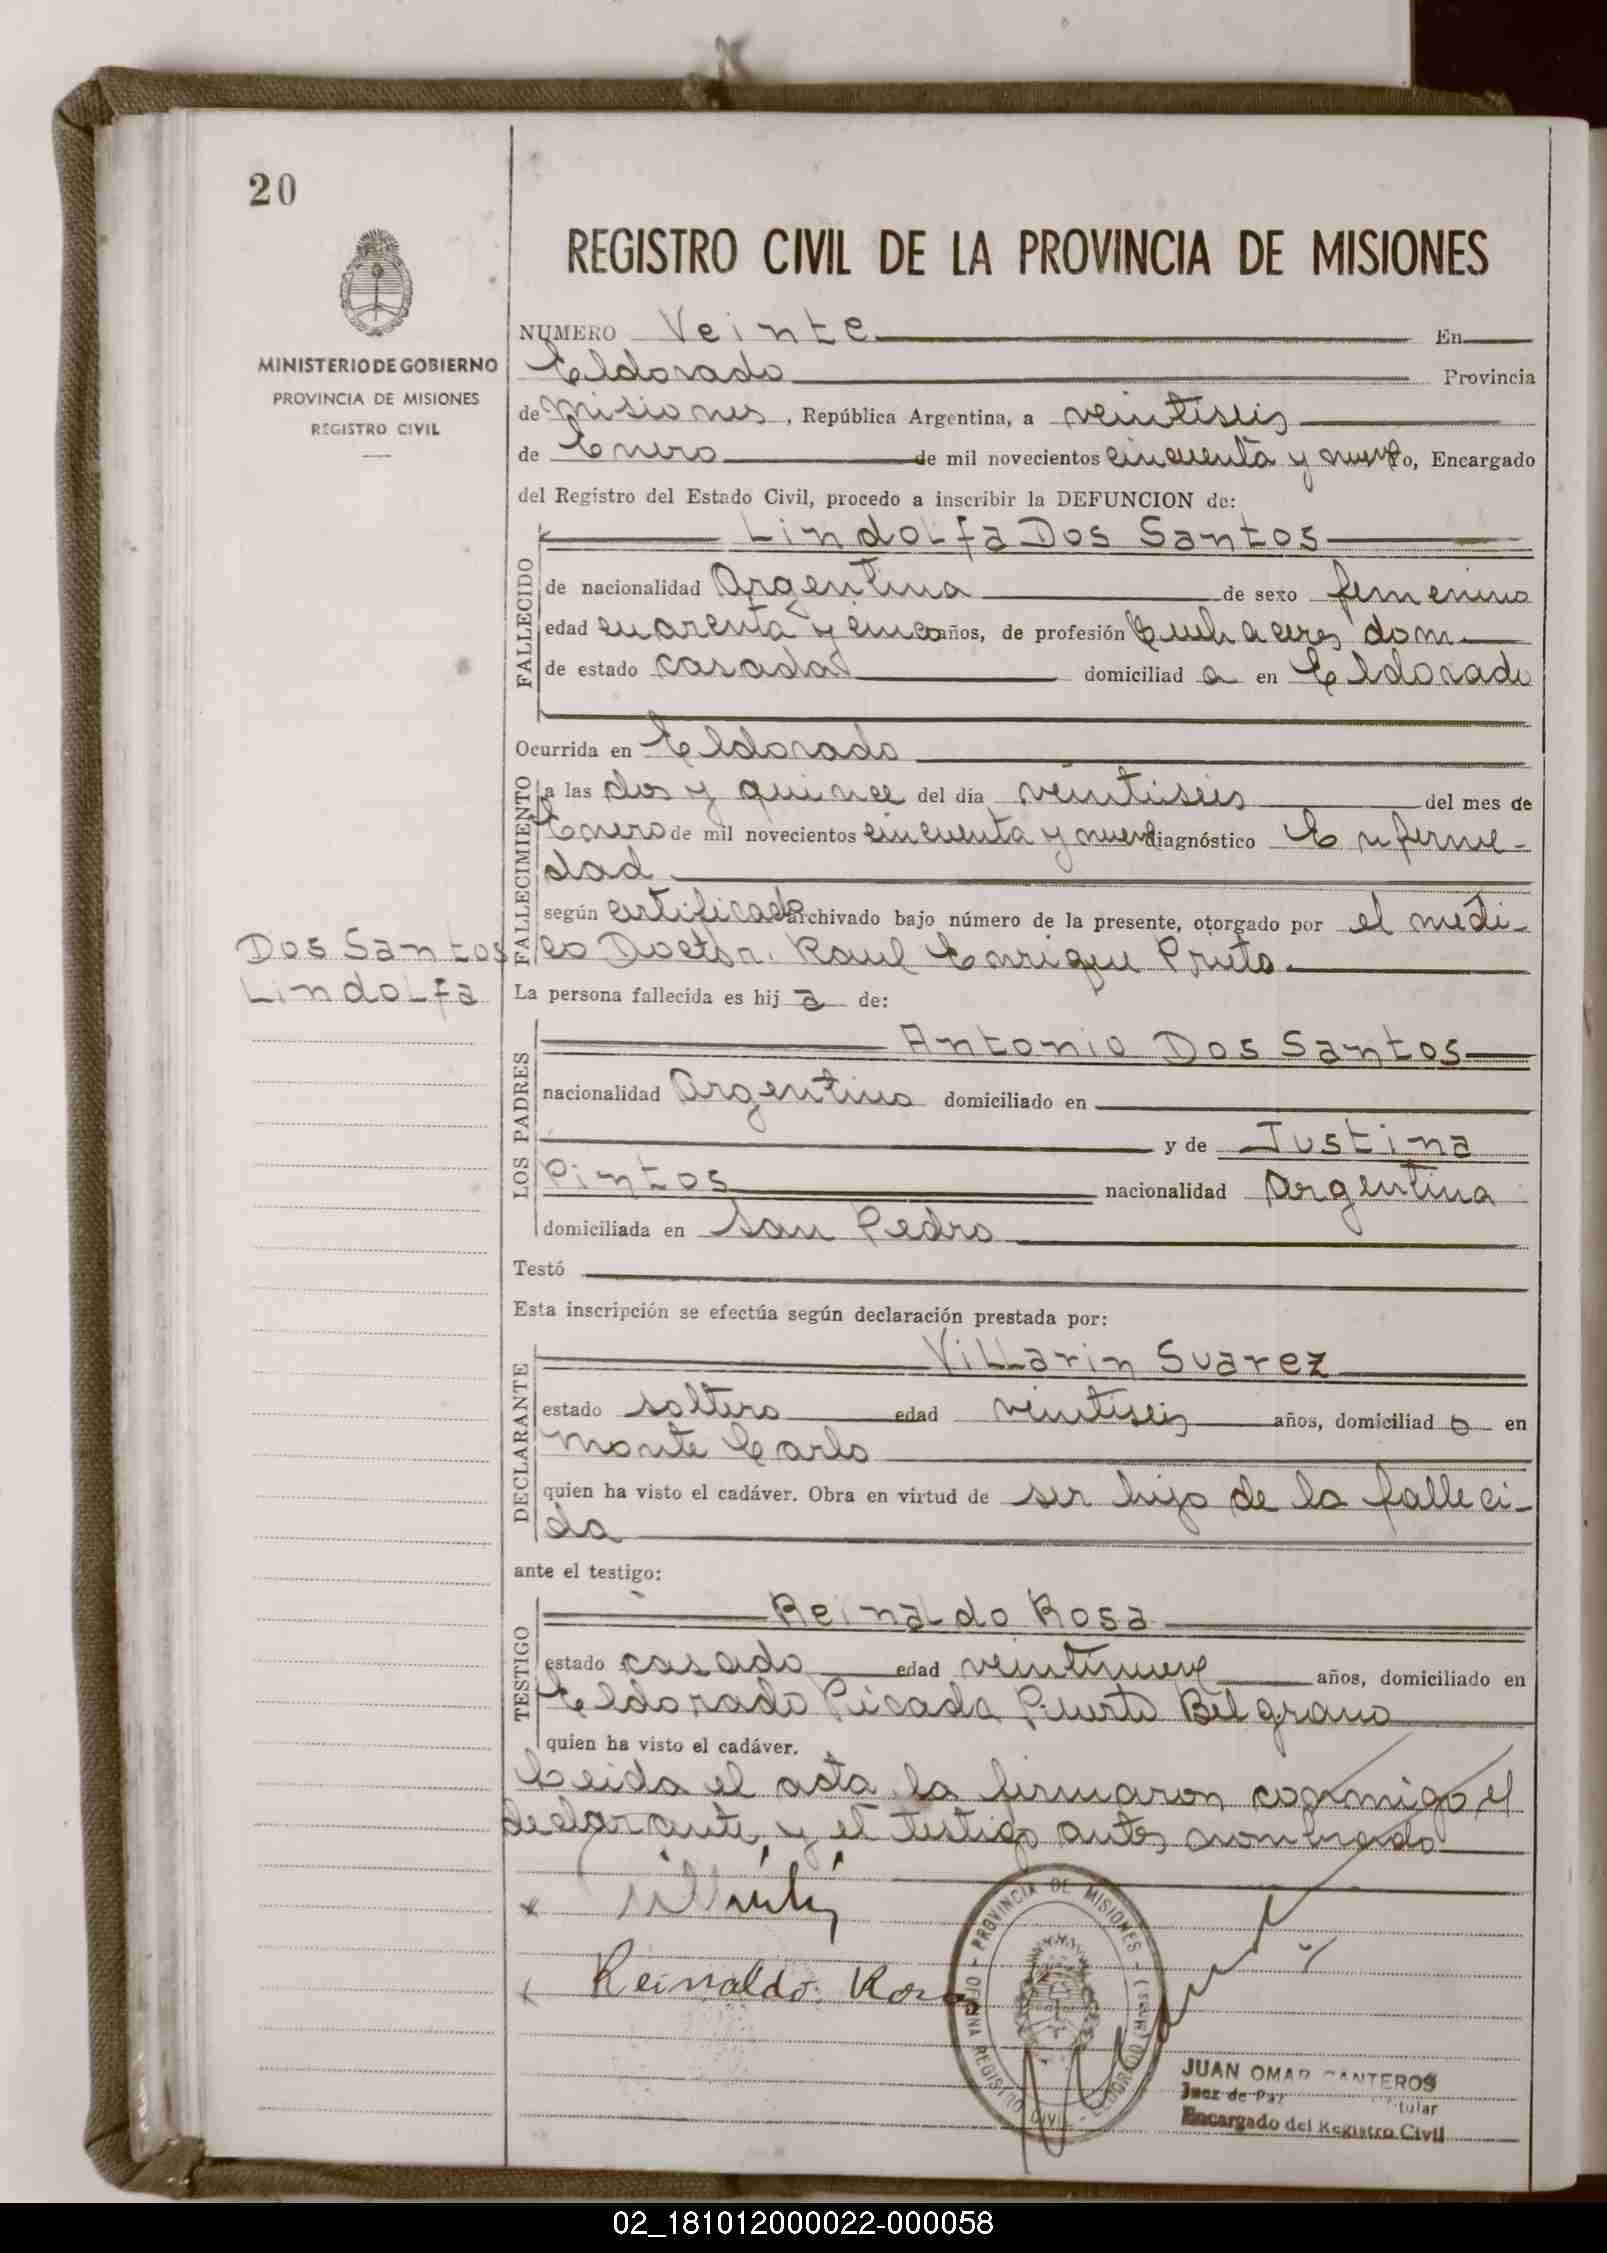 20
REGISTRO CIVIL DE LA PROVINCIA DE MISIONES
MINISTERIO DE GOBIERNO
PROVINCIA DE MISIONES
REGISTRO CIVIL
NUMERO Veinte En
Eldorado Provincia
de Misiones, República Argentina, a veintiseis
de Enero de mil novecientos cincuenta y nueve yo, Encargado
del Registro del Estado Civil, procedo a inscribir la DEFUNCION de:
FALLECIDO
Lindolfa Dos Santos
de nacionalidad Argentina de sexo femenino
edad cuarenta y cinco años, de profesión Quehaceres dom
de estado casada domiciliad a en Eldorado
Ocurrida en Eldorado
FALLECIMIENTO
a las dos y quince del día veintiseis del mes de
Enero de mil novecientos cincuenta y nueve diagnóstico Enferme-
dad
según certificado archivado bajo número de la presente, otorgado por el medi-
co Doctor. Raul Enrique Prieto
Dos Santos
Lindolfa
La persona fallecida es hij a de:
LOS PADRES
Antonio Dos Santos
nacionalidad Argentina domiciliado en
y de Justina
Pintos nacionalidad Argentina
domiciliada en San Pedro
Testó
Esta inscripción se efectúa según declaración prestada por:
DECLARANTE
Villarin Suarez
estado soltero edad veintiseis años, domiciliad o en
Monte Carlo
quien ha visto el cadáver. Obra en virtud de ser hijo de la falleci-
da
ante el testigo:
TESTIGO
Reinaldo Rosa
estado casado edad veintinueve años, domiciliado en
Eldorado Picada Puerto Belgrano
quien ha visto el cadáver.
Leida el acta la firmaron conmigo el
declarante, y el testigo antes nombrado
Reinaldo. Rosa
PROVINCIA DE MISIONES - ELDORADO (Mnes.) - OFICINA REGISTRO CIVIL
JUAN OMAR CANTEROS
Juez de Paz Titular
Encargado del Registro Civil
02_181012000022-000058